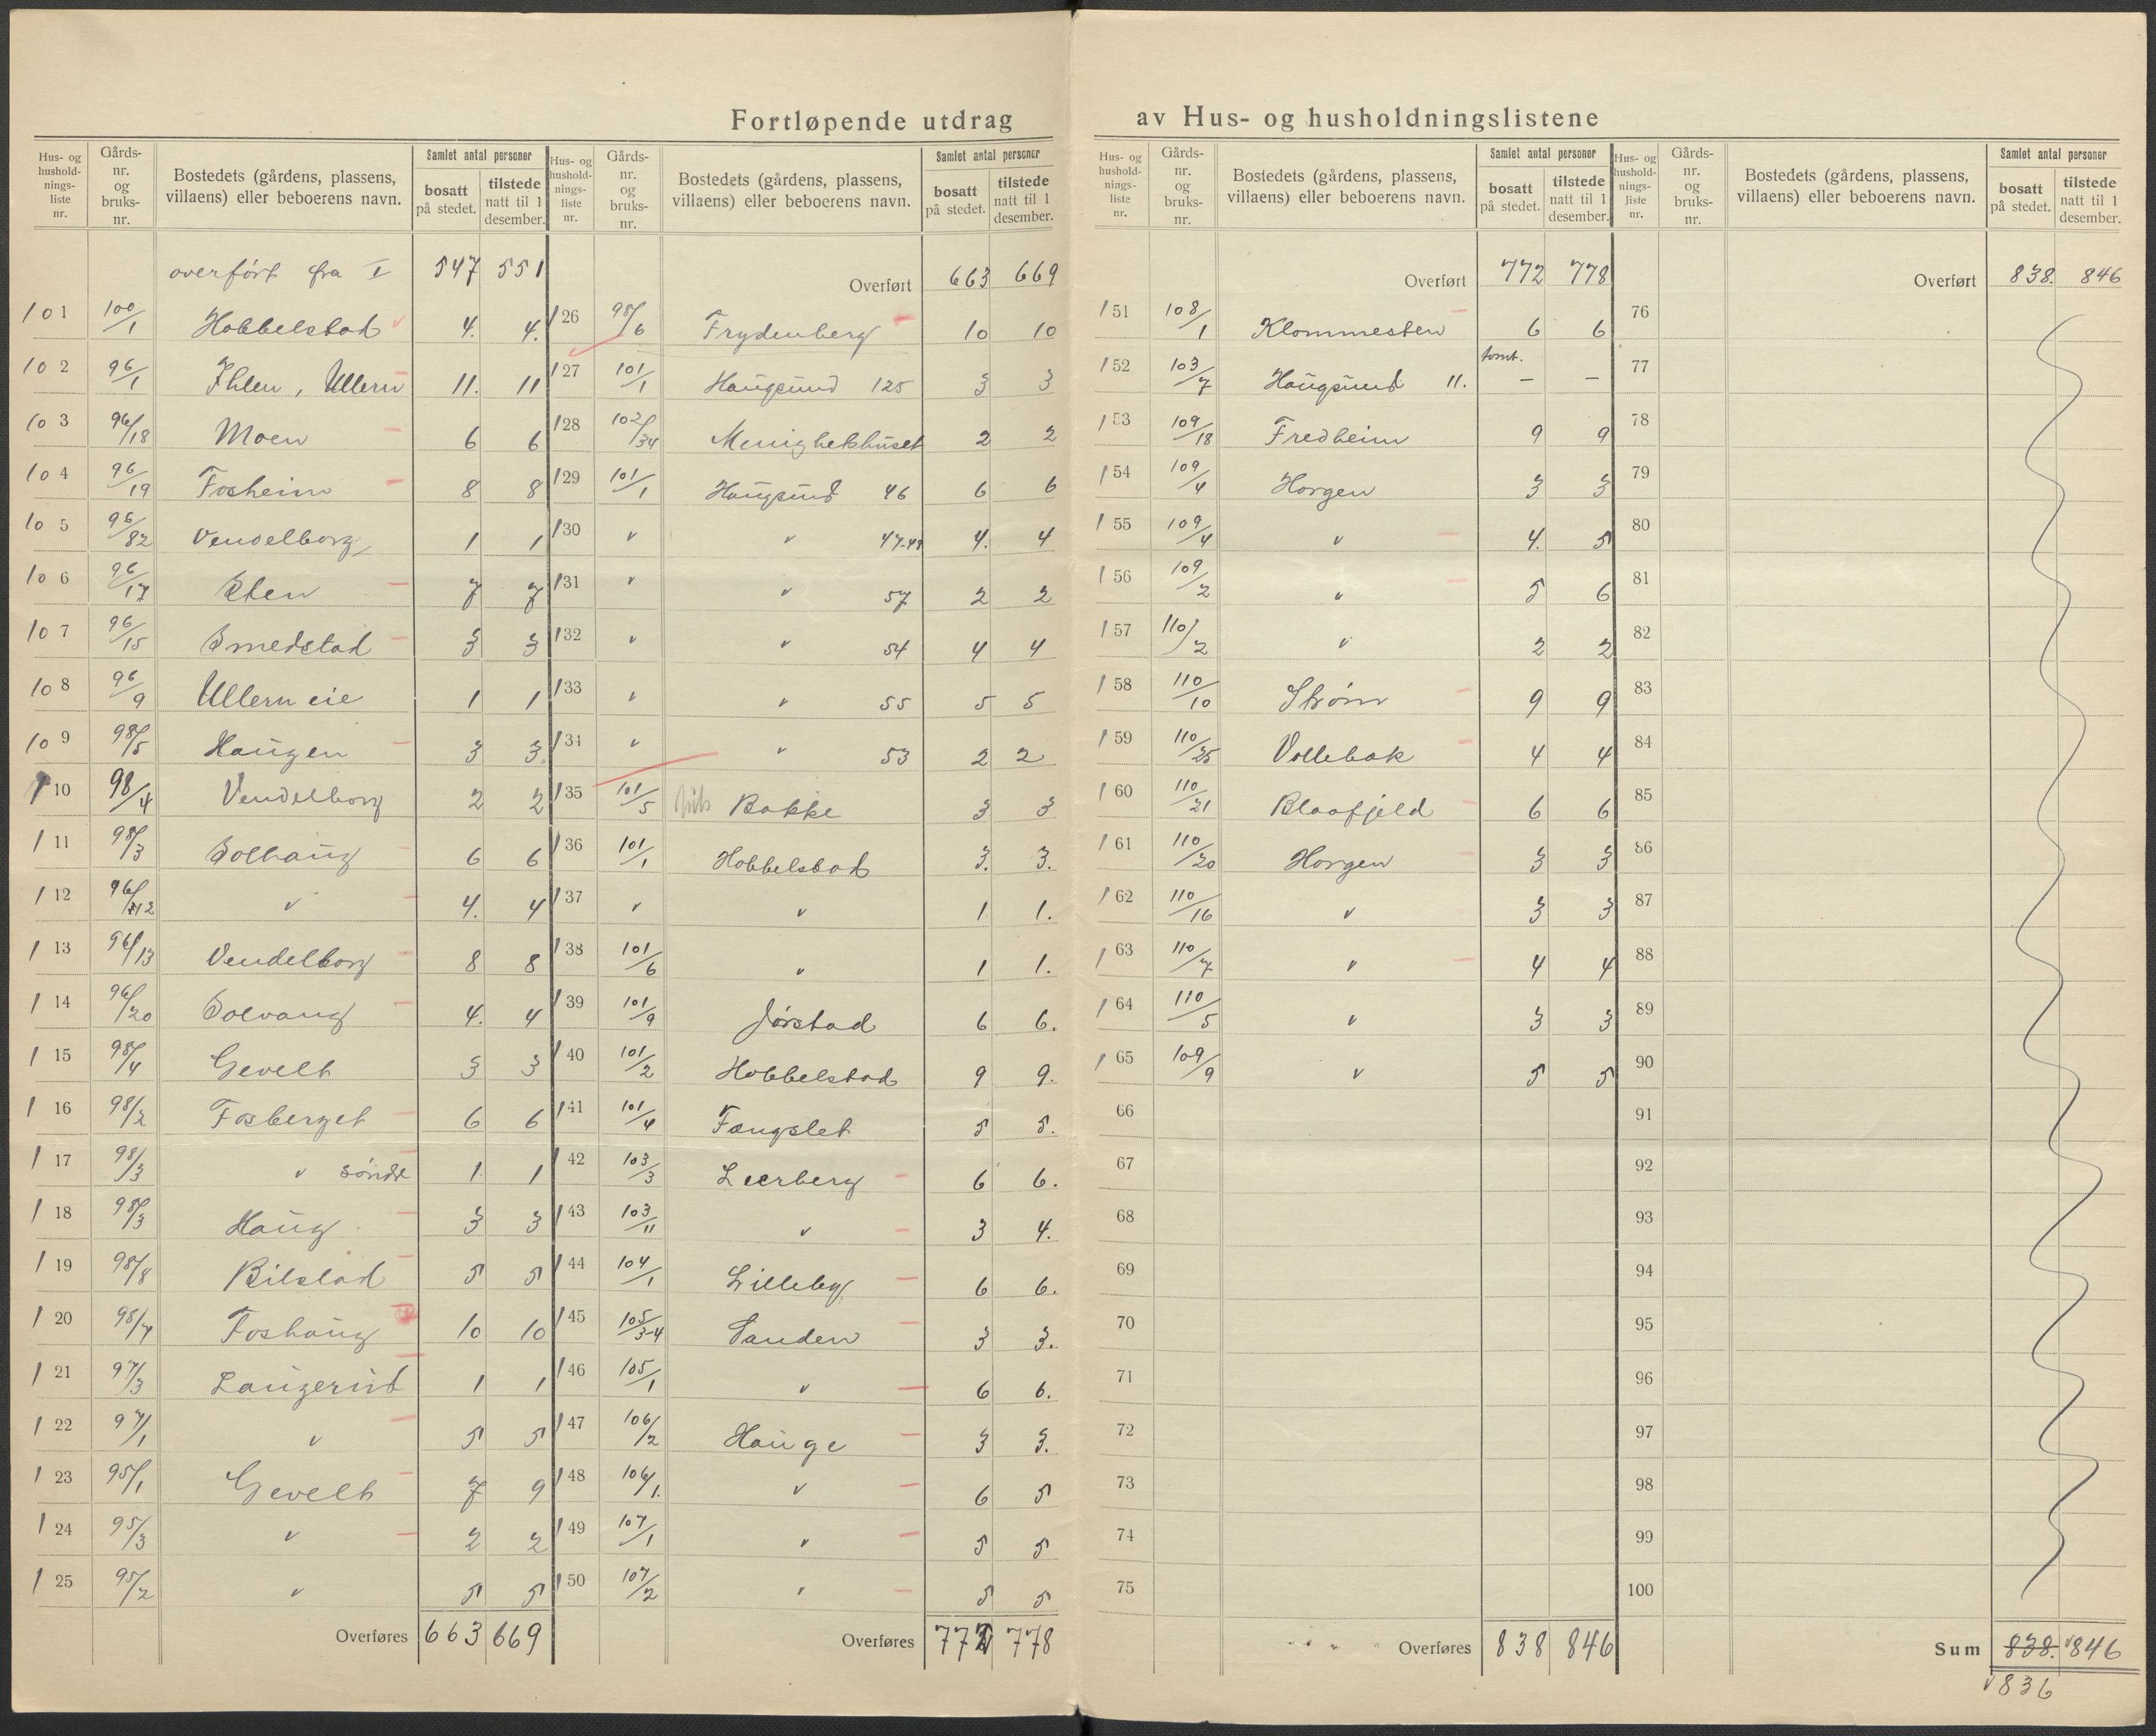 Fortløpende utdrag av Hus- og husholdningslistene
Hus- og hushold-nings-liste nr. Gårds-nr. og bruks-nr. Bostedets (gårdens, plassens, villaens) eller beboerens navn. Samlet antal personer bosatt på stedet. tilstede natt til 1 desember.
overført fra I 547 551
101 100/1 Hobbelstad 4. 4.
102 96/1 Ihlen, Ullern 11. 11
103 96/18 Moen 6 6
104 96/19 Fosheim 8 8
105 96/82 Vendelborg 1 1
106 96/17 Sten 7 7
107 96/15 Smedstad 3 3
108 96/9 Ullern eie 1 1
109 98/5 Haugen 3 3.
110 98/4 Vendelborg 2 2
111 98/3 Solhaug 6 6
112 96/12 " 4. 4
113 96/13 Vendelborg 8 8
114 96/20 Solvang 4. 4
115 98/4 Gevelt 3 3
116 98/2 Fosberget 6 6
117 98/3 " søndre 1 1
118 98/3 Haug 3 3
119 98/8 Bilstad 5 5
120 98/7 Foshaug 10 10
121 97/3 Laugerud 1 1
122 97/1 " 5 5
123 95/1 Gevelt 7 9
124 95/3 " 2 2
125 95/2 " 5 5
Overføres 663 669
Hus- og hushold-nings-liste nr. Gårds-nr. og bruks-nr. Bostedets (gårdens, plassens, villaens) eller beboerens navn. Samlet antal personer bosatt på stedet. tilstede natt til 1 desember.
Overført 663 669
126 98/6 Frydenberg 10 10
127 101/1 Haugsund 125 3 3
128 102/34 Menighetshuset 2 2
129 101/1 Haugsund 46 6 6
130 " " 47.48 4. 4
131 " " 57 2 2
132 " " 54 4 4
133 " " 55 5 5
134 " " 53 2 2
135 101/5 Bakke 3 3
136 101/1 Hobbelstad 3. 3.
137 " " 1 1.
138 101/6 " 1 1.
139 101/9 Jørstad 6 6.
140 101/2 Hobbelstad 9 9.
141 101/4 Fangslet 5 5.
142 103/3 Leerberg 6 6.
143 103/11 " 3 4.
144 104/1 Lilleby 6 6.
145 105/3-4 Sanden 3 3.
146 105/1 " 6 6.
147 106/2 Hauge 3 3.
148 106/1. " 6 5
149 107/1 " 5 5
150 107/2 " 5 5
Overføres 772 778
Hus- og hushold-nings-liste nr. Gårds-nr. og bruks-nr. Bostedets (gårdens, plassens, villaens) eller beboerens navn. Samlet antal personer bosatt på stedet. tilstede natt til 1 desember.
Overført 772 778
151 108/1 Klommesten 6 6
152 103/7 Haugsund 11. tomt. — —
153 109/18 Fredheim 9 9
154 109/4 Horgen 3 3
155 109/4 " 4. 5
156 109/2 " 5 6
157 110/2 " 2 2
158 110/10 Strøm 9 9
159 110/25 Vollebæk 4 4
160 110/21 Blaafjeld 6 6
161 110/20 Horgen 3 3
162 110/16 " 3 3
163 110/7 " 4 4
164 110/5 " 3 3
165 109/9 " 5 5
66
67
68
69
70
71
72
73
74
75
Overføres 838 846
Hus- og hushold-nings-liste nr. Gårds-nr. og bruks-nr. Bostedets (gårdens, plassens, villaens) eller beboerens navn. Samlet antal personer bosatt på stedet. tilstede natt til 1 desember.
Overført 838. 846
76
77
78
79
80
81
82
83
84
85
86
87
88
89
90
91
92
93
94
95
96
97
98
99
100
Sum 838. 846
836